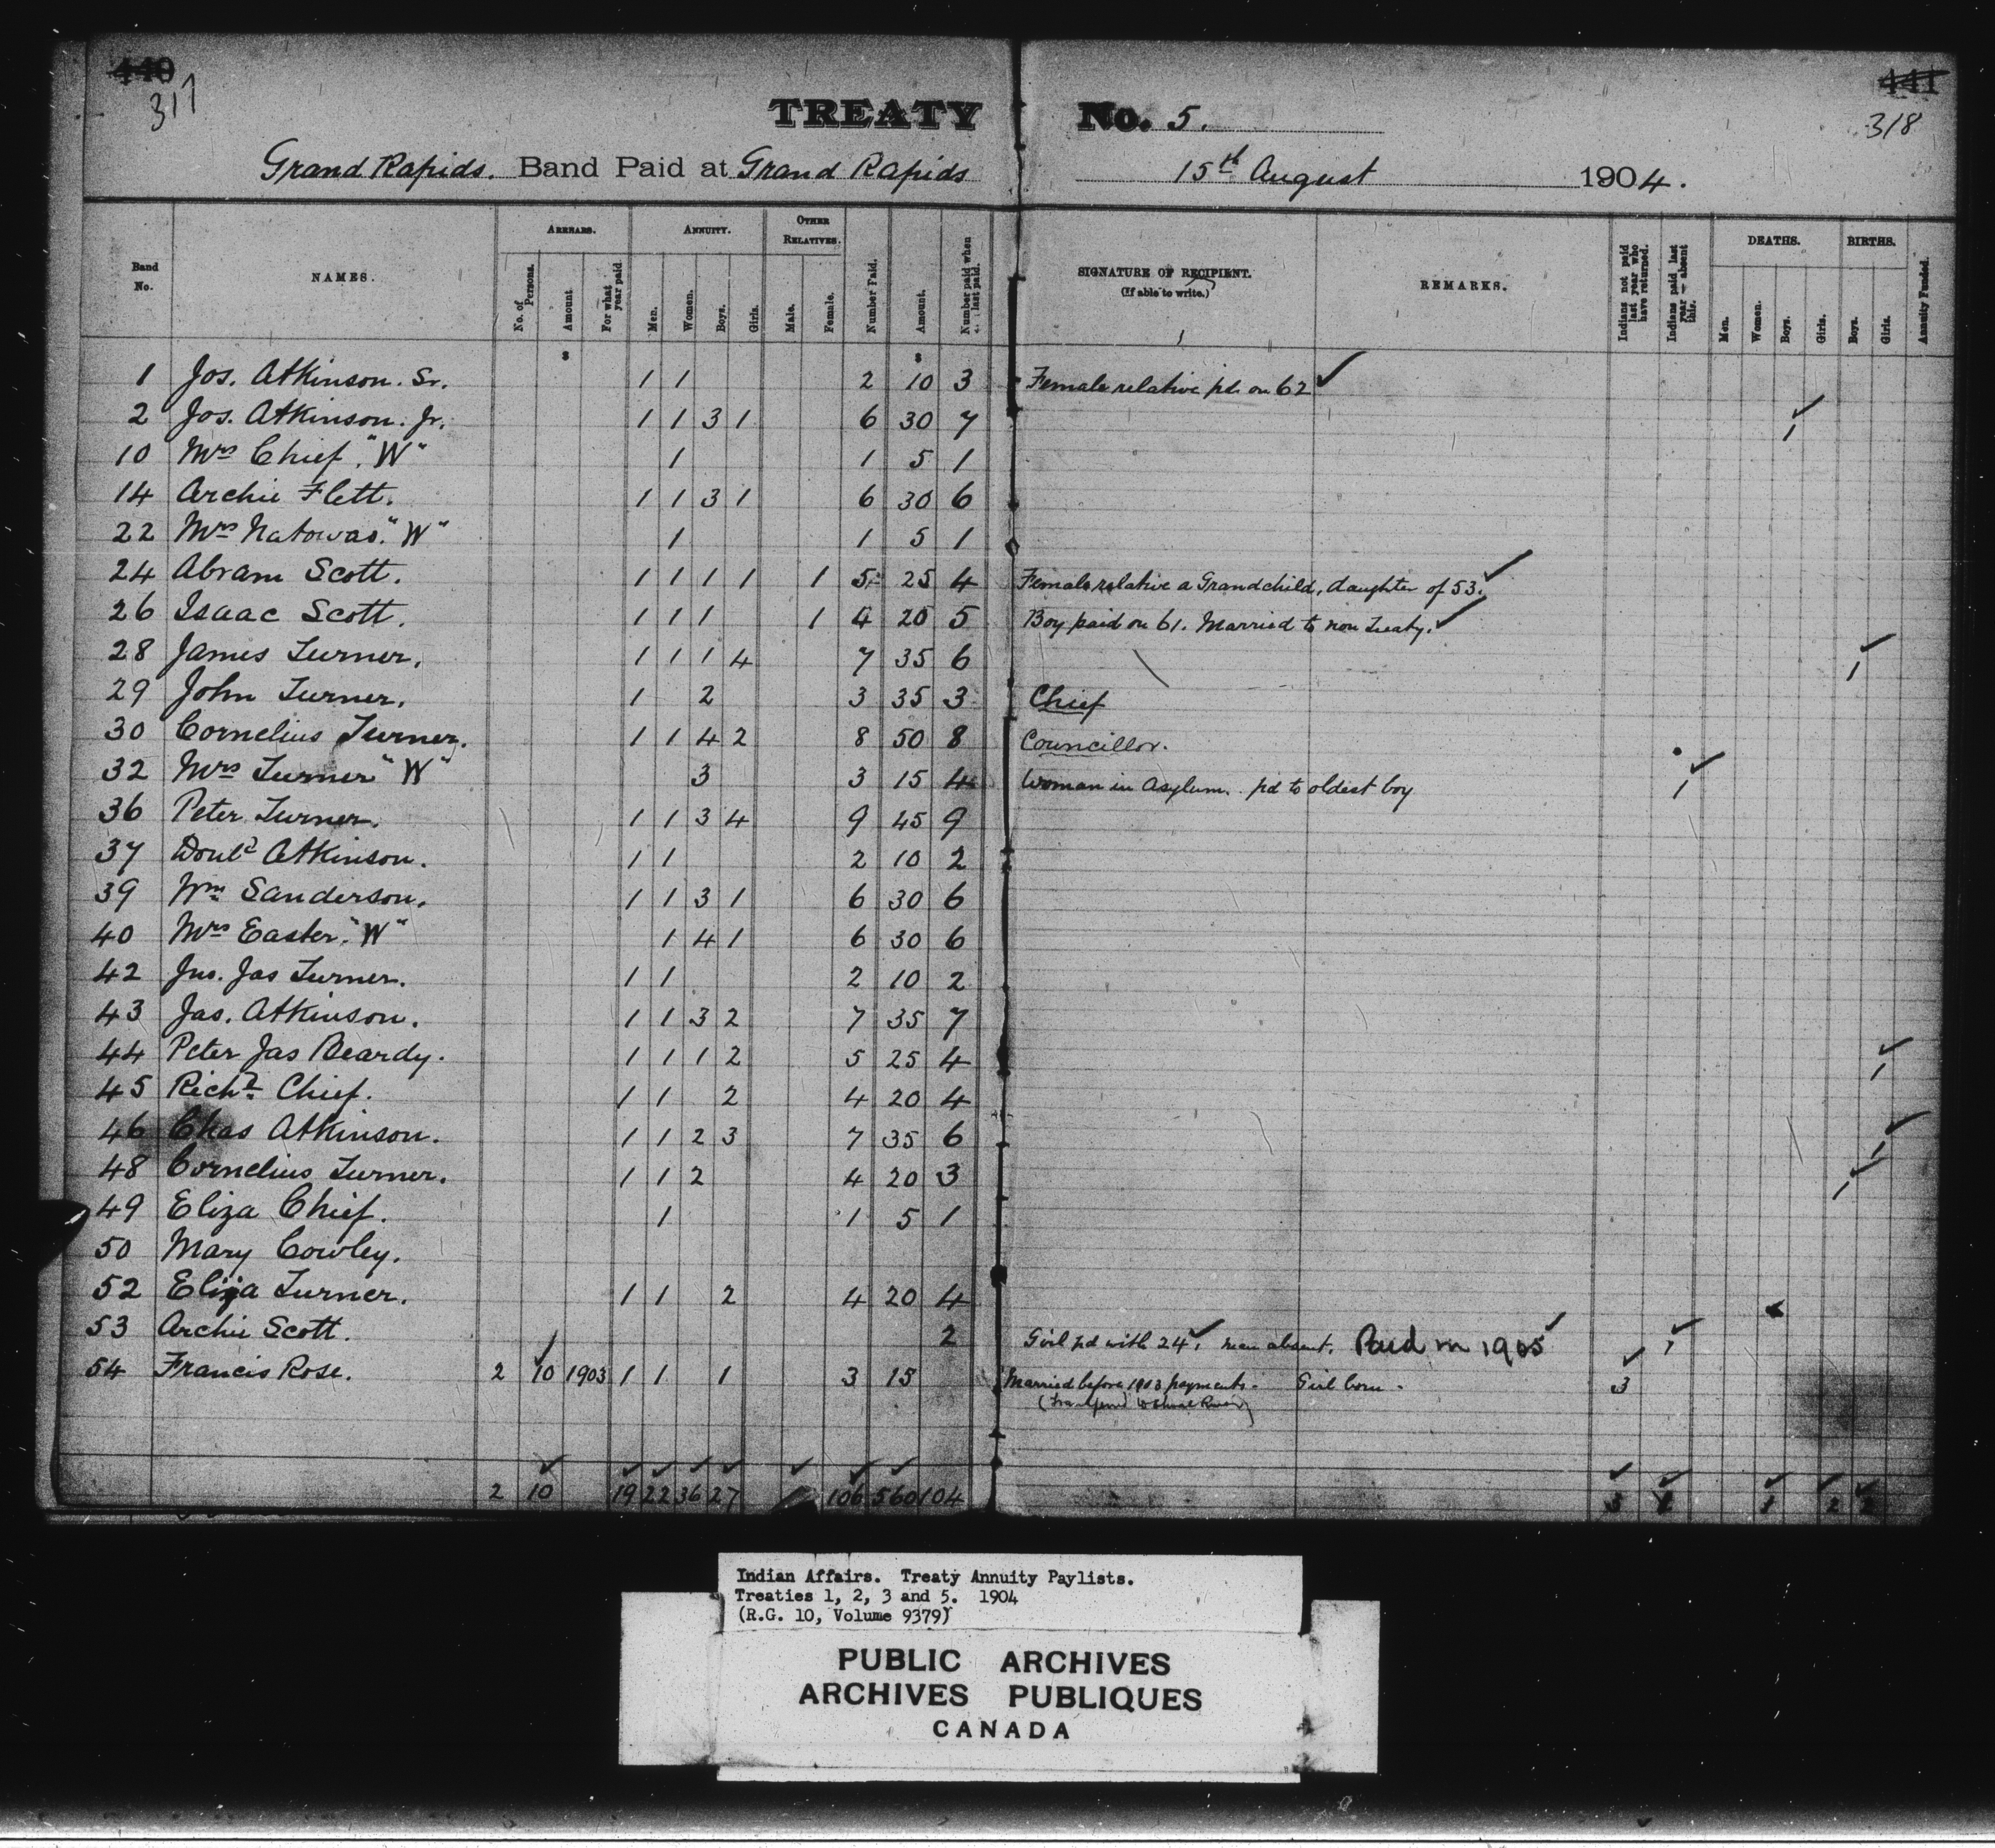 440 441
317 318
TREATY No. 5.
Grand Rapids. Band Paid at Grand Rapids 15th August 1904.
Band No. NAMES. ARREARS. No. of Persons. Amount For what year paid ANNUITY. Men. Women. Boys. Girls. OTHER RELATIVES. Male. Female. Number Paid. Amount. Number paid when last paid. SIGNATURE OF RECIPIENT. (If able to write.) REMARKS. Indians not paid last year who have returned. Indians paid last year – absent this. DEATHS. Men. Women. Boys. Girls. BIRTHS. Boys. Girls. Annuity Funded.
$ $
1 Jos. Atkinson. Sr. 1 1 2 10 3 Female relative pd on 62 ✓
2 Jos. Atkinson. Jr. 1 1 3 1 6 30 7 ✓ 1
10 Mrs Chief. "W" 1 1 5 1
14 Archie Flett. 1 1 3 1 6 30 6
22 Mrs Natowas. "W" 1 1 5 1
24 Abram Scott. 1 1 1 1 1 5 25 4 Female relative a Grandchild, daughter of 53. ✓
26 Isaac Scott. 1 1 1 1 4 20 5 Boy paid on 61. Married to non Treaty. ✓
28 James Turner. 1 1 1 4 7 35 6 ✓ 1
29 John Turner. 1 2 3 35 3 Chief
30 Cornelius Turner. 1 1 4 2 8 50 8 Councillor.
32 Mrs Turner "W" 3 3 15 4 Woman in Asylum. pd to oldest boy ✓ 1
36 Peter Turner. 1 1 3 4 9 45 9
37 Donld Atkinson. 1 1 2 10 2
39 Wm Sanderson. 1 1 3 1 6 30 6
40 Mrs Easter. "W" 1 4 1 6 30 6
42 Jno. Jas Turner. 1 1 2 10 2
43 Jas. Atkinson. 1 1 3 2 7 35 7
44 Peter Jas Beardy. 1 1 1 2 5 25 4 ✓ 1
45 Richd Chief. 1 1 2 4 20 4
46 Chas Atkinson. 1 1 2 3 7 35 6 ✓ 1
48 Cornelius Turner. 1 1 2 4 20 3 ✓ 1
49 Eliza Chief. 1 1 5 1
50 Mary Cowley.
52 Eliza Turner. 1 1 2 4 20 4
53 Archie Scott. 2 Girl pd with 24 ✓. man absent. Paid in 1905 ✓ ✓ 1
54 Francis Rose. 2 10 1903 1 1 1 3 15 Married before 1903 payments. Girl born. ✓ 3
2 10 19 22 36 27 106 560 104
Indian Affairs. Treaty Annuity Paylists.
Treaties 1, 2, 3 and 5. 1904
(R.G. 10, Volume 9379)
PUBLIC ARCHIVES
ARCHIVES PUBLIQUES
CANADA